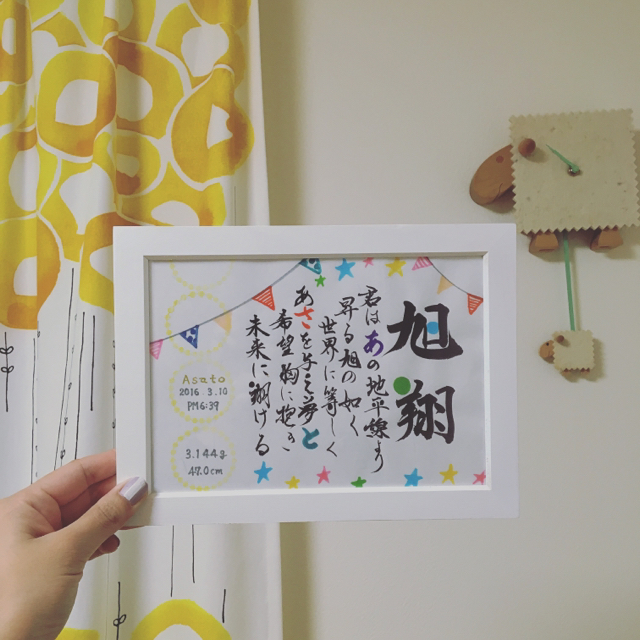 旭翔
君はあの地平線より
昇る旭の如く
世界に等しく
あさを与え夢と
希望胸に抱き
未来に翔ける
Asato
2016.3.10
PM6:39
3.144g
47.0cm